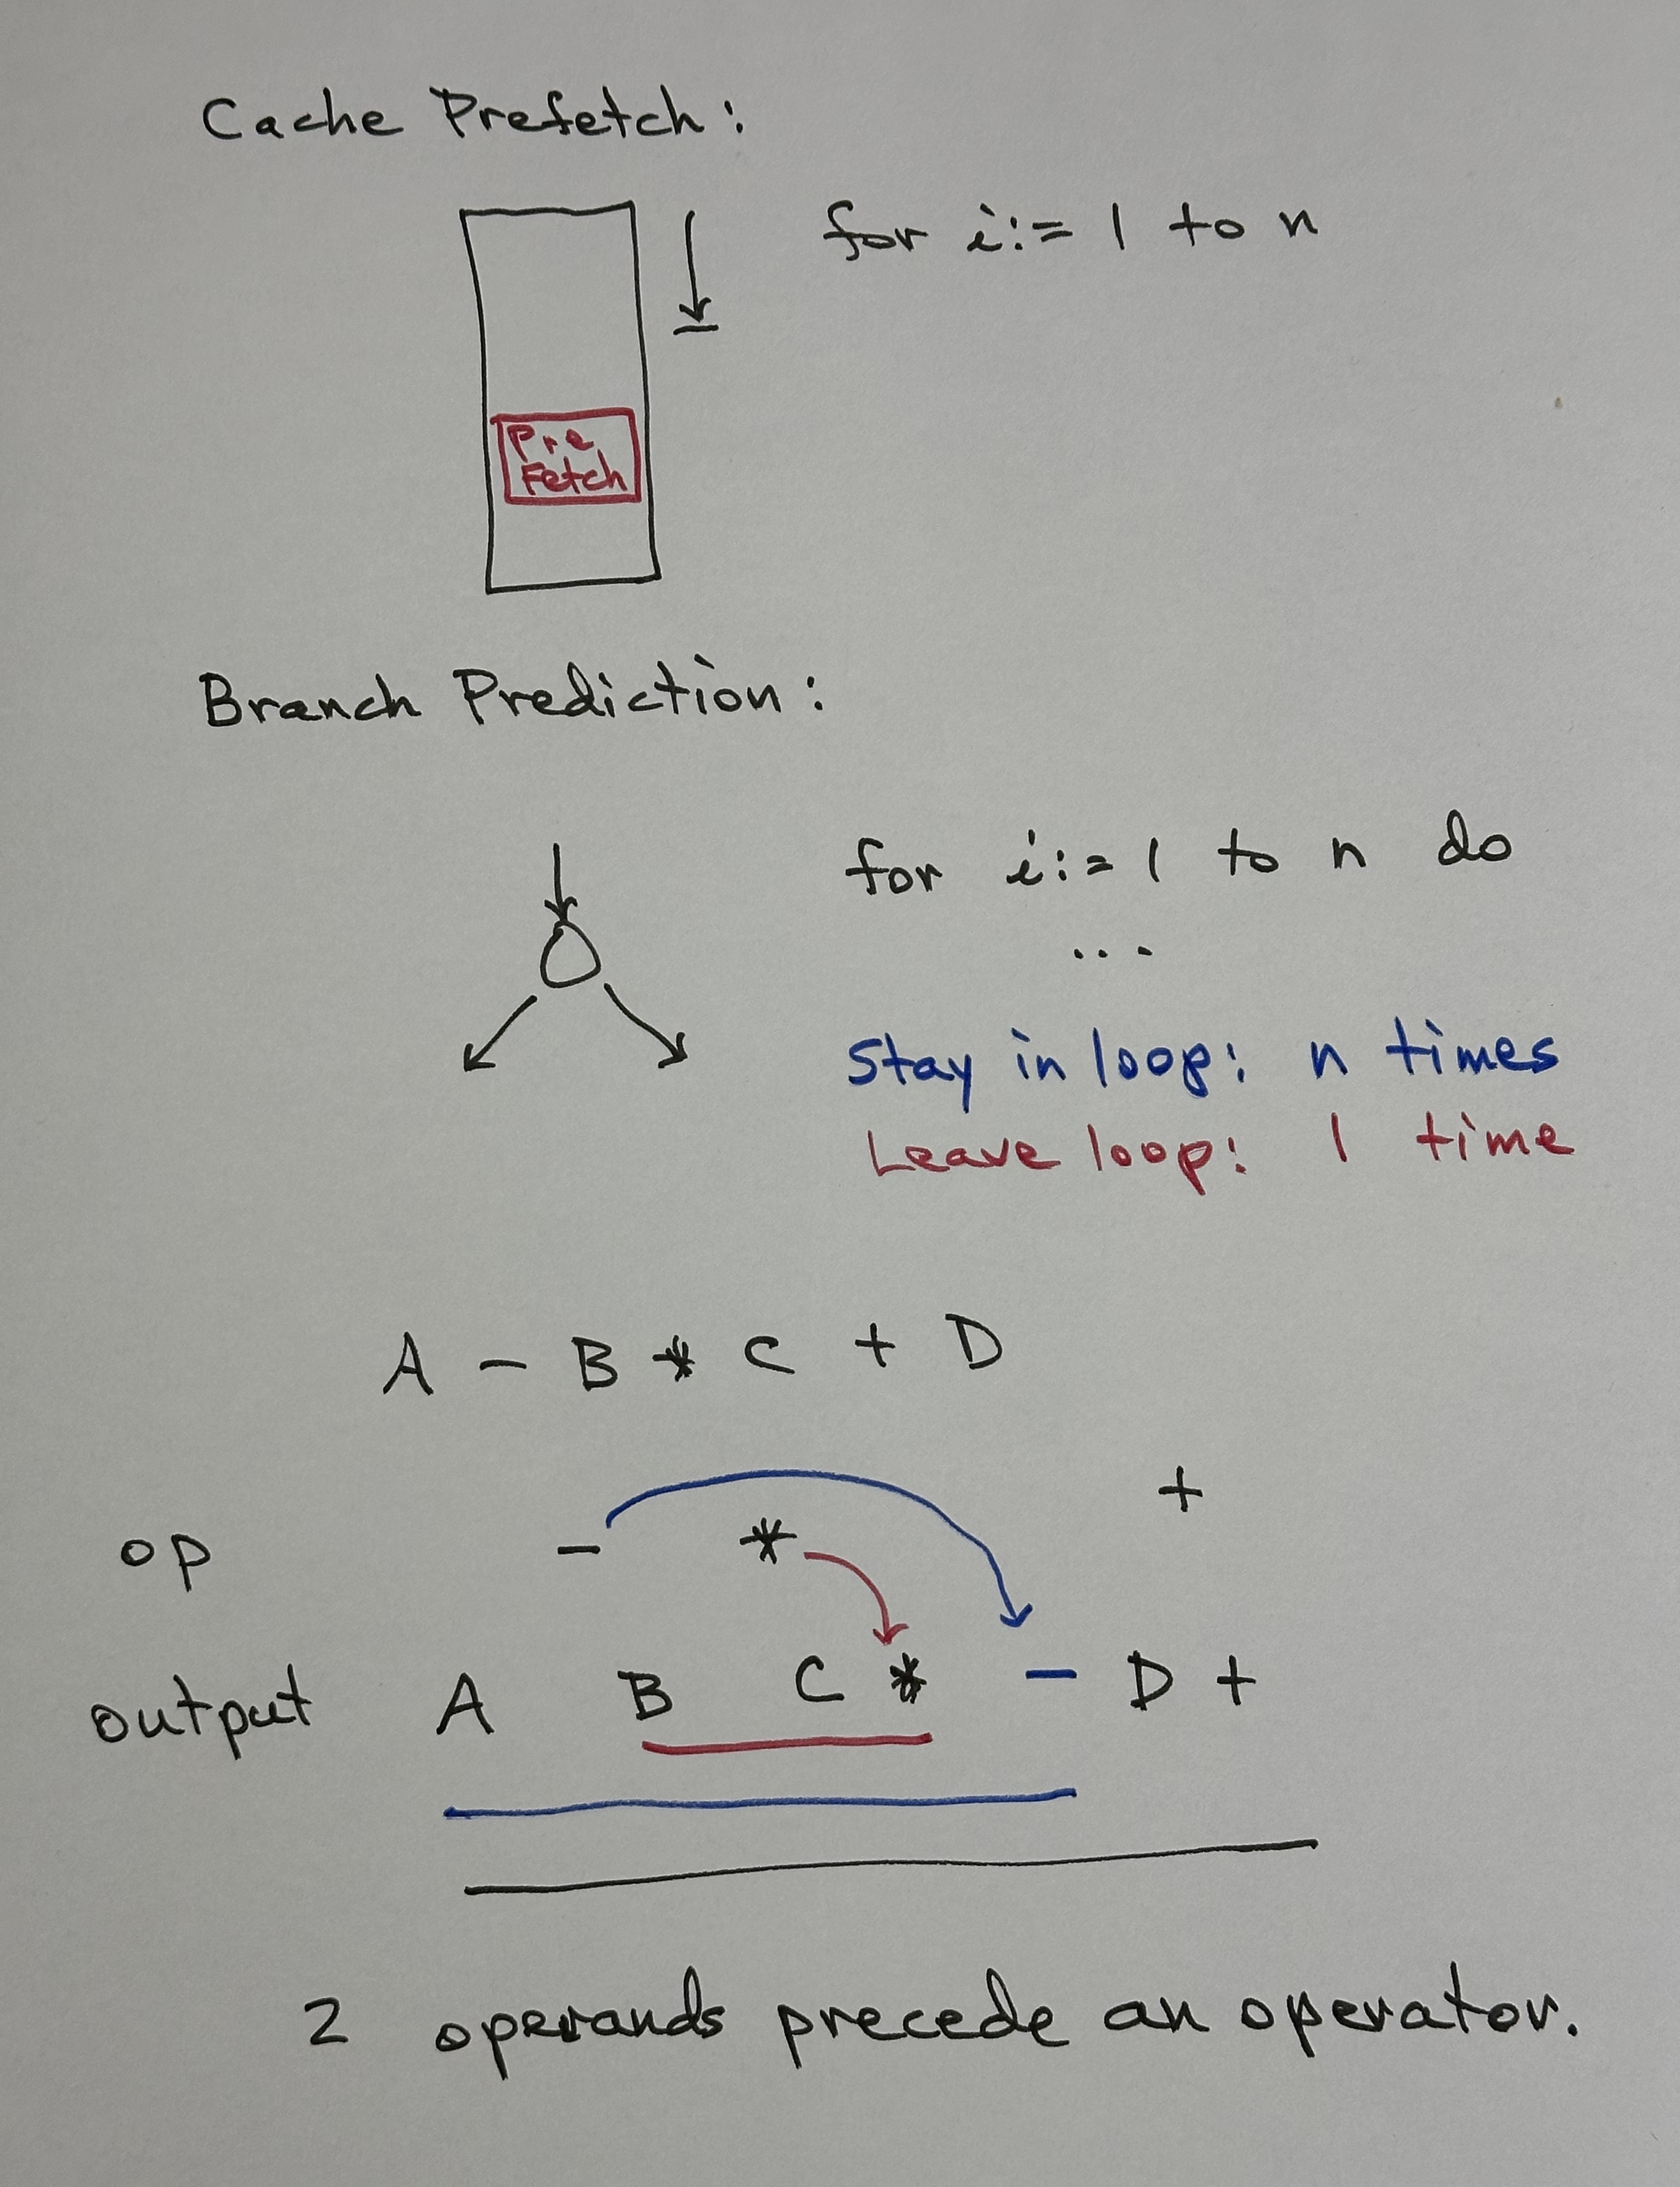 Cache Prefetch:
for i:= 1 to n
Pre
Fetch
Branch Prediction:
for i:= 1 to n do
...
Stay in loop: n times
Leave loop: 1 time
A - B * C + D
+
op - *
output A B C * - D +
2 operands precede an operator.